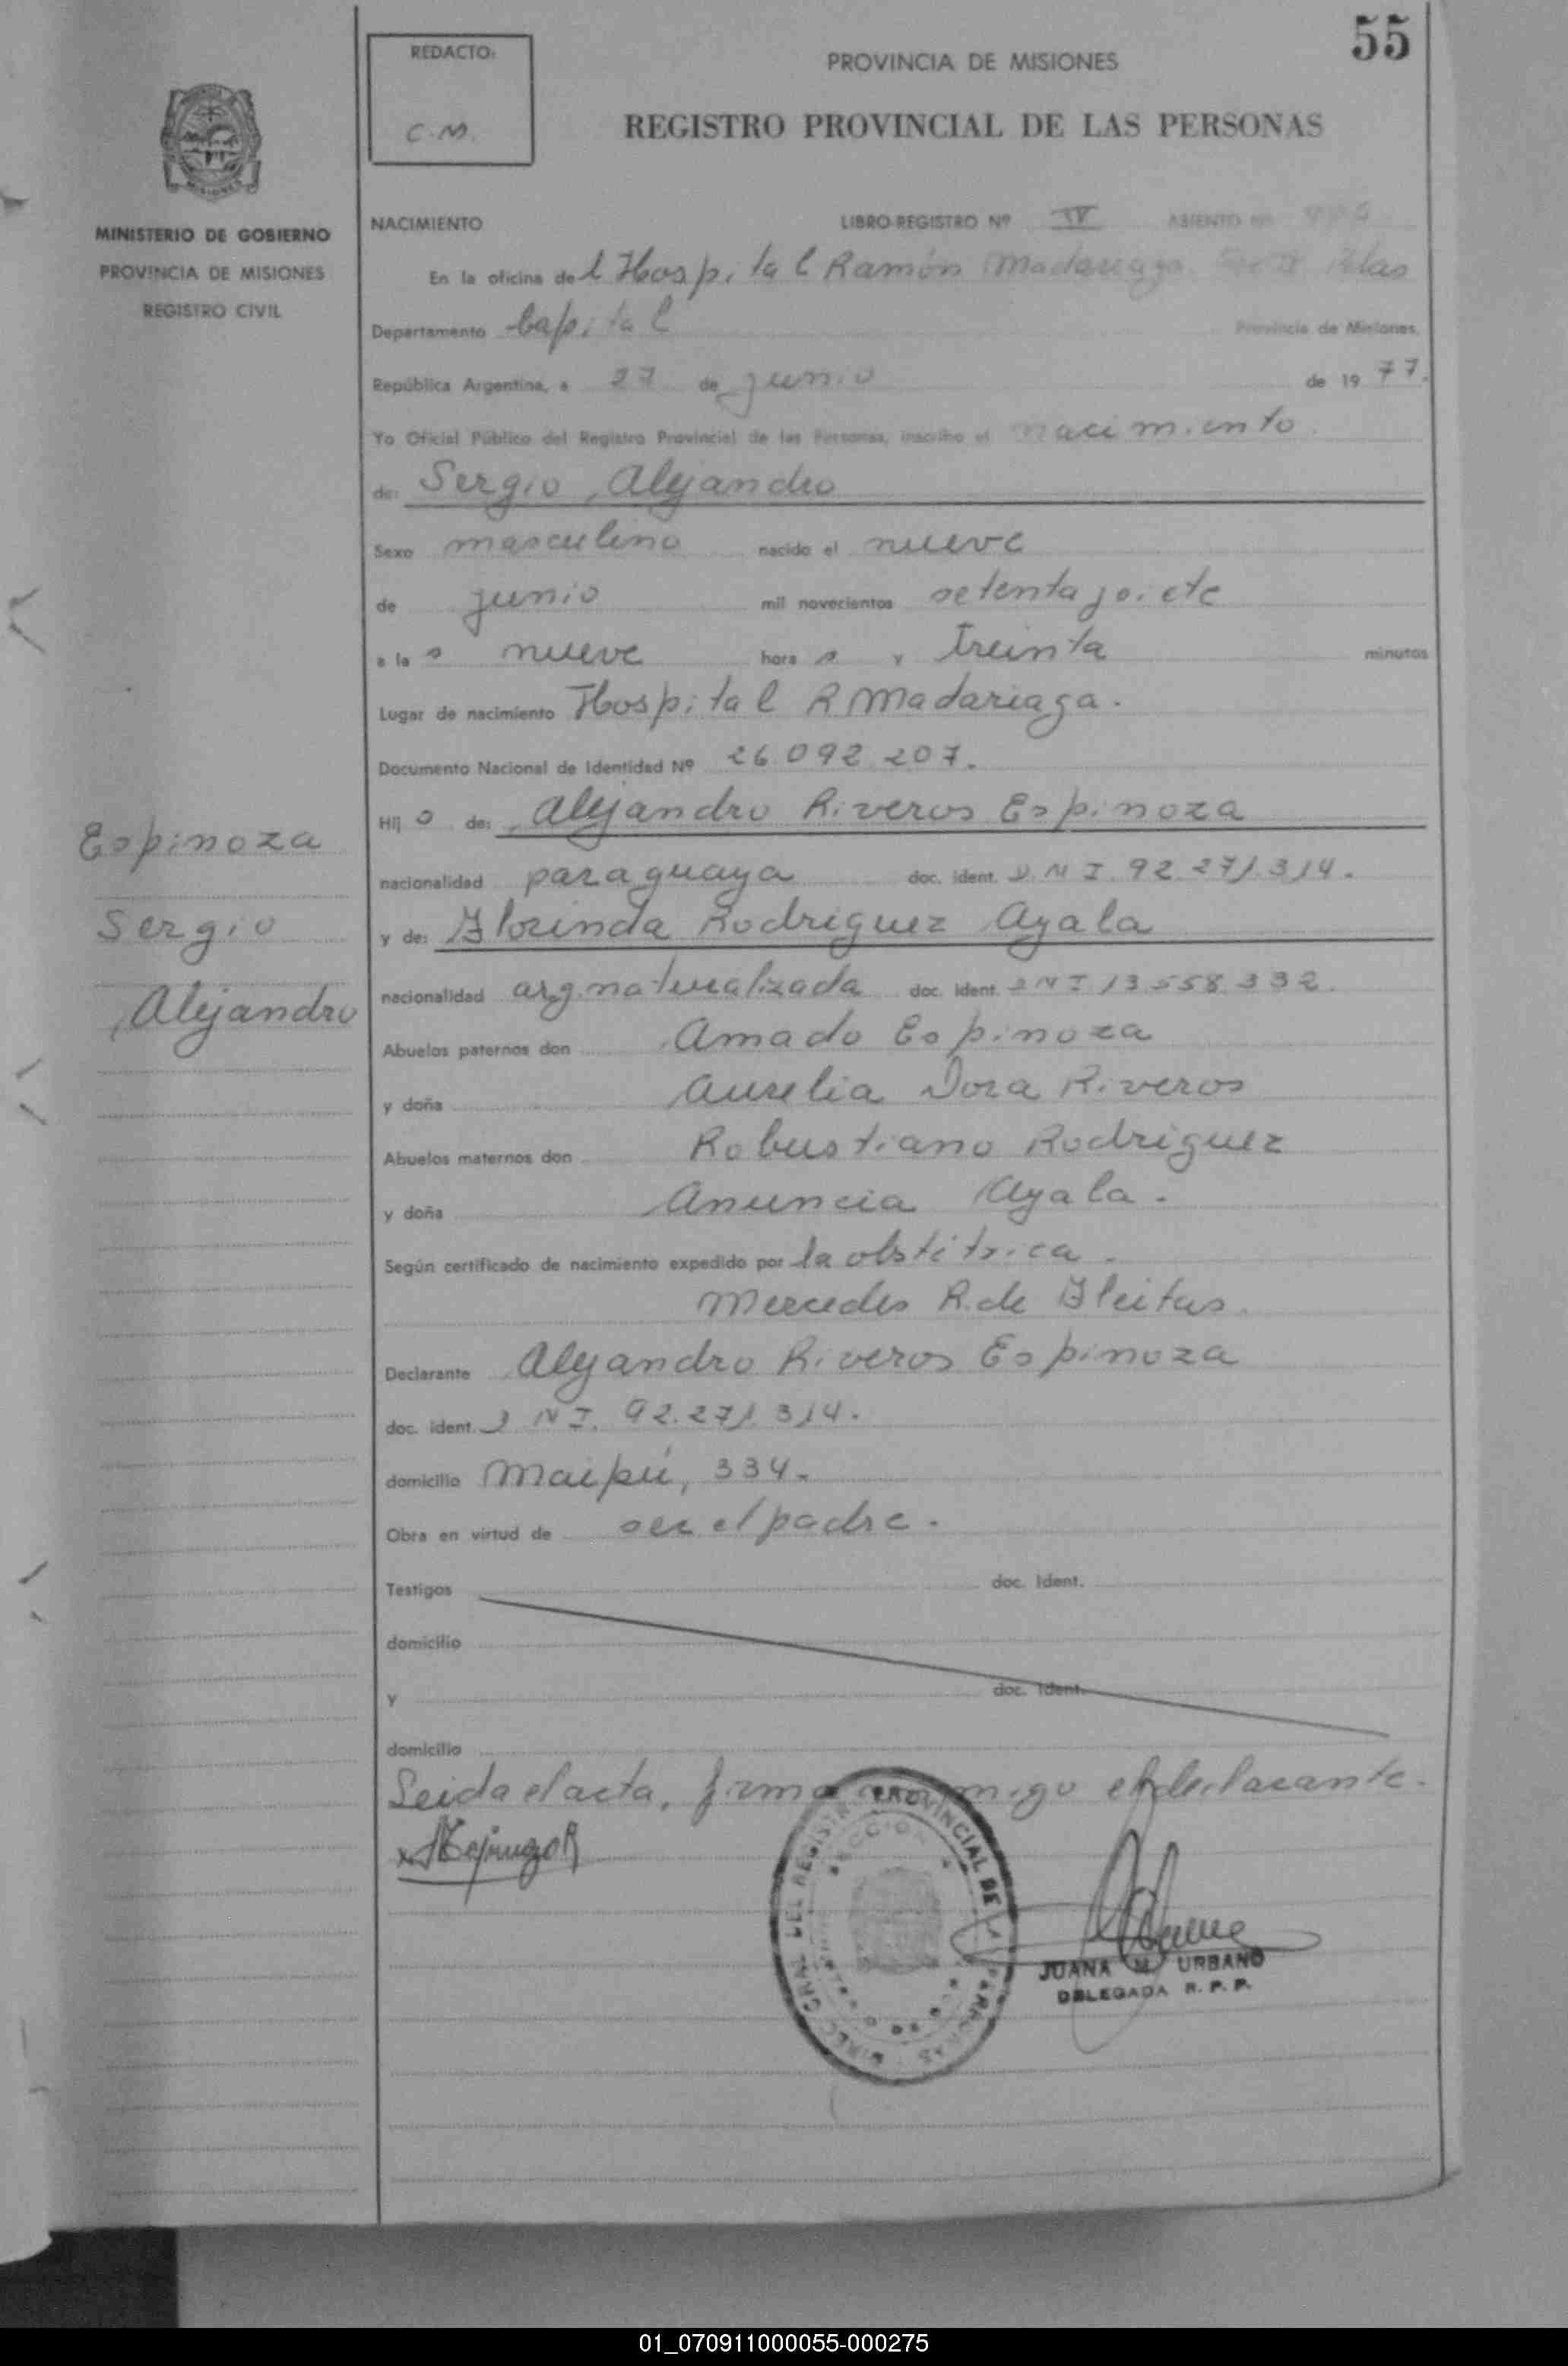 55
REDACTO:
C.M.
PROVINCIA DE MISIONES
REGISTRO PROVINCIAL DE LAS PERSONAS
MISIONES
MINISTERIO DE GOBIERNO
PROVINCIA DE MISIONES
REGISTRO CIVIL
Espinoza
Sergio
Alejandro
NACIMIENTO LIBRO-REGISTRO Nº IV ASIENTO Nº
En la oficina del Hospital Ramón Madariaga
Departamento Capital Provincia de Misiones,
República Argentina, a 27 de junio de 1977.
Yo Oficial Público del Registro Provincial de las Personas, inscribo el nacimiento
de: Sergio, Alejandro
Sexo masculino nacido el nueve
de junio mil novecientos setenta y siete
a las nueve horas y treinta minutos
Lugar de nacimiento Hospital R Madariaga.
Documento Nacional de Identidad Nº 26.092.207.
Hijo de: Alejandro Riveros Espinoza
nacionalidad paraguaya doc. ident. D.N.I. 92.271.314.
y de: Florinda Rodriguez Ayala
nacionalidad arg. naturalizada doc. ident. DNI 13.558.332.
Abuelos paternos don Amado Espinoza
y doña Aurelia Dora Riveros
Abuelos maternos don Robustiano Rodriguez
y doña Anuncia Ayala.
Según certificado de nacimiento expedido por la obstétrica.
Mercedes R. de Fleitas.
Declarante Alejandro Riveros Espinoza
doc. ident. D.N.I. 92.271.314.
domicilio Maipú, 334.
Obra en virtud de ser el padre.
Testigos doc. ident.
domicilio
y doc. ident.
domicilio
Leida el acta, firma conmigo el declarante.
DIREC. GRAL. DEL REGISTRO PROVINCIAL DE LAS PERSONAS
SECCION
JUANA M. URBANO
DELEGADA R. P. P.
01_070911000055-000275